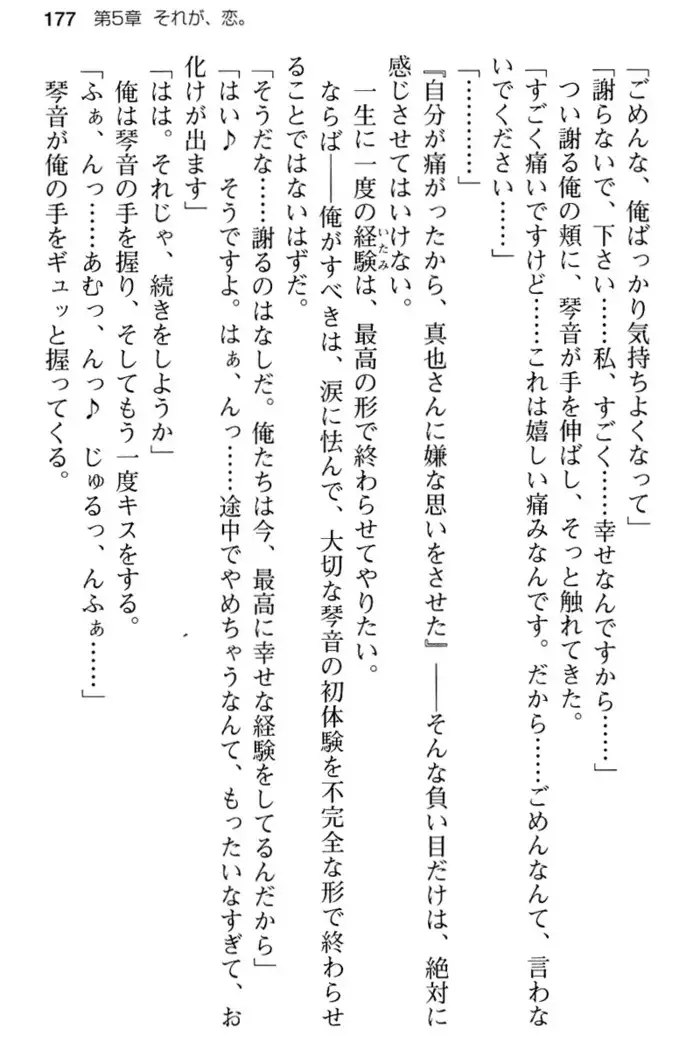 177 第5章 それが、恋。
「ごめんな、俺ばっかり気持ちよくなって」
「謝らないで、下さい……私、すごく……幸せなんですから……」
つい謝る俺の頬に、琴音が手を伸ばし、そっと触れてきた。
「すごく痛いですけど……これは嬉しい痛みなんです。だから……ごめんなんて、言わな
いでください……」
「…………」
『自分が痛がったから、真也さんに嫌な思いをさせた』――そんな負い目だけは、絶対に
感じさせてはいけない。
一生に一度の経験いたみは、最高の形で終わらせてやりたい。
ならば――俺がすべきは、涙に怯んで、大切な琴音の初体験を不完全な形で終わらせ
ることではないはずだ。
「そうだな……謝るのはなしだ。俺たちは今、最高に幸せな経験をしてるんだから」
「はい♪　そうですよ。はぁ、んっ……途中でやめちゃうなんて、もったいなすぎて、お
化けが出ます」
「はは。それじゃ、続きをしようか」
俺は琴音の手を握り、そしてもう一度キスをする。
「ふぁ、んっ……あむっ、んっ♪　じゅるっ、んふぁ……」
琴音が俺の手をギュッと握ってくる。